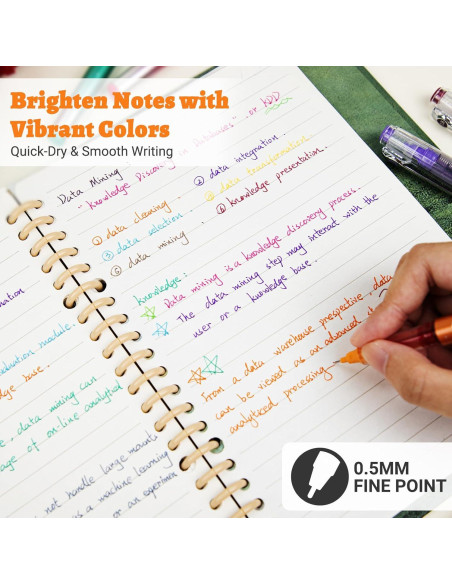 Brighten Notes with
Vibrant Colors
Quick-Dry & Smooth Writing
Data Mining
- Knowledge Discovery in Databases" or KDD
① data cleaning
② data integration.
③ data selection
④ data transformation
⑤ data mining
⑥ knowledge presentation.
knowledge:
Data mining is a knowledge discovery process.
The data mining step may interact with the
user or a knowledge base.
From a data warehouse prespective, data
can be viewed as an advanced
analyticed processing
mation
module.
dge base.
, data mining can
age of on-line analytical
not handle large
as a machine learning
or an experimen
0.5MM
FINE POINT